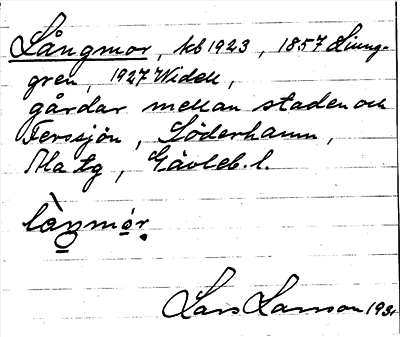 Långmor, kb 1923, 1857 Ljung-
gren, 1927 Widell,
gårdar mellan staden och
Ferssjön, Söderhamn,
Ala tg, Gävleb. l.
làŋmór.
Lars Larsson 1931